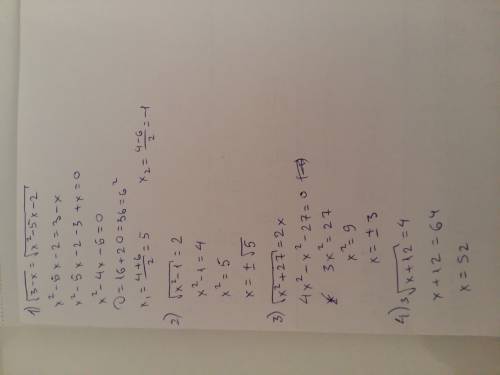 1) √(3-x) = √(x²-5x-2)
x²-5x-2=3-x
x²-5x-2-3+x=0
x²-4x-6=0
D=16+20=36=6²
x₁=(4+6)/2=5 x₂=(4-6)/2=-1
2) √(x²-1)=2
x²-1=4
x²=5
x=±√5
3) √(x²+27)=2x
4x²-x²-27=0
3x²=27
x²=9
x=±3
4) ³√(x+12)=4
x+12=64
x=52